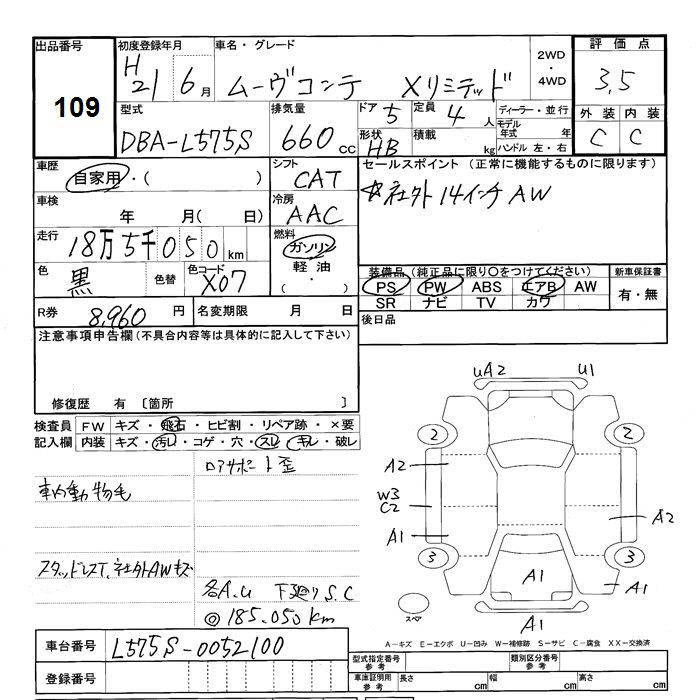 出品番号 初度登録年月 車名・グレード 2WD・4WD 評価点
109 H21 6月 ムーヴコンテ Xリミテッド 3,5
型式 排気量 ドア 5 定員 4人 ディーラー・並行 外装 内装
DBA-L575S 660cc 形状 HB 積載 kg モデル年式 年 C C
ハンドル 左・右
車歴 シフト セールスポイント (正常に機能するものに限ります)
自家用・( ) CAT ☆社外14インチAW
車検 冷房
年 月( 日) AAC
走行 燃料
18万5千050km ガソリン
色 色替 色コード 軽油 装備品 (純正品に限り○をつけてください) 新車保証書
黒 X07 ( ・ ) PS PW ABS エアB AW 有・無
SR ナビ TV カワ
R券 8,960円 名変期限 月 日 後日品
注意事項申告欄(不具合内容等は具体的に記入して下さい)
修復歴 有 〔箇所 〕
検査員 FW キズ・飛石・ヒビ割・リペア跡・×要
記入欄 内装 キズ・汚レ・コゲ・穴・スレ・キレ・破レ
ロアサポート歪
車内動物毛
スタッドレスT、社外AWキズ
各A.U 下廻りS.C
◎185.050km
uA2 U1
2 2
A2
W3
C2 A2
A1
3 3
A1 A1
スペア A1
A－キズ E－エクボ U－凹み W－補修跡 S－サビ C－腐食 XX－交換済
車台番号 L575S-0052100
型式指定番号 参考 類別区分番号 参考
登録番号 車庫証明用 参考 長さ cm 幅 cm 高さ cm